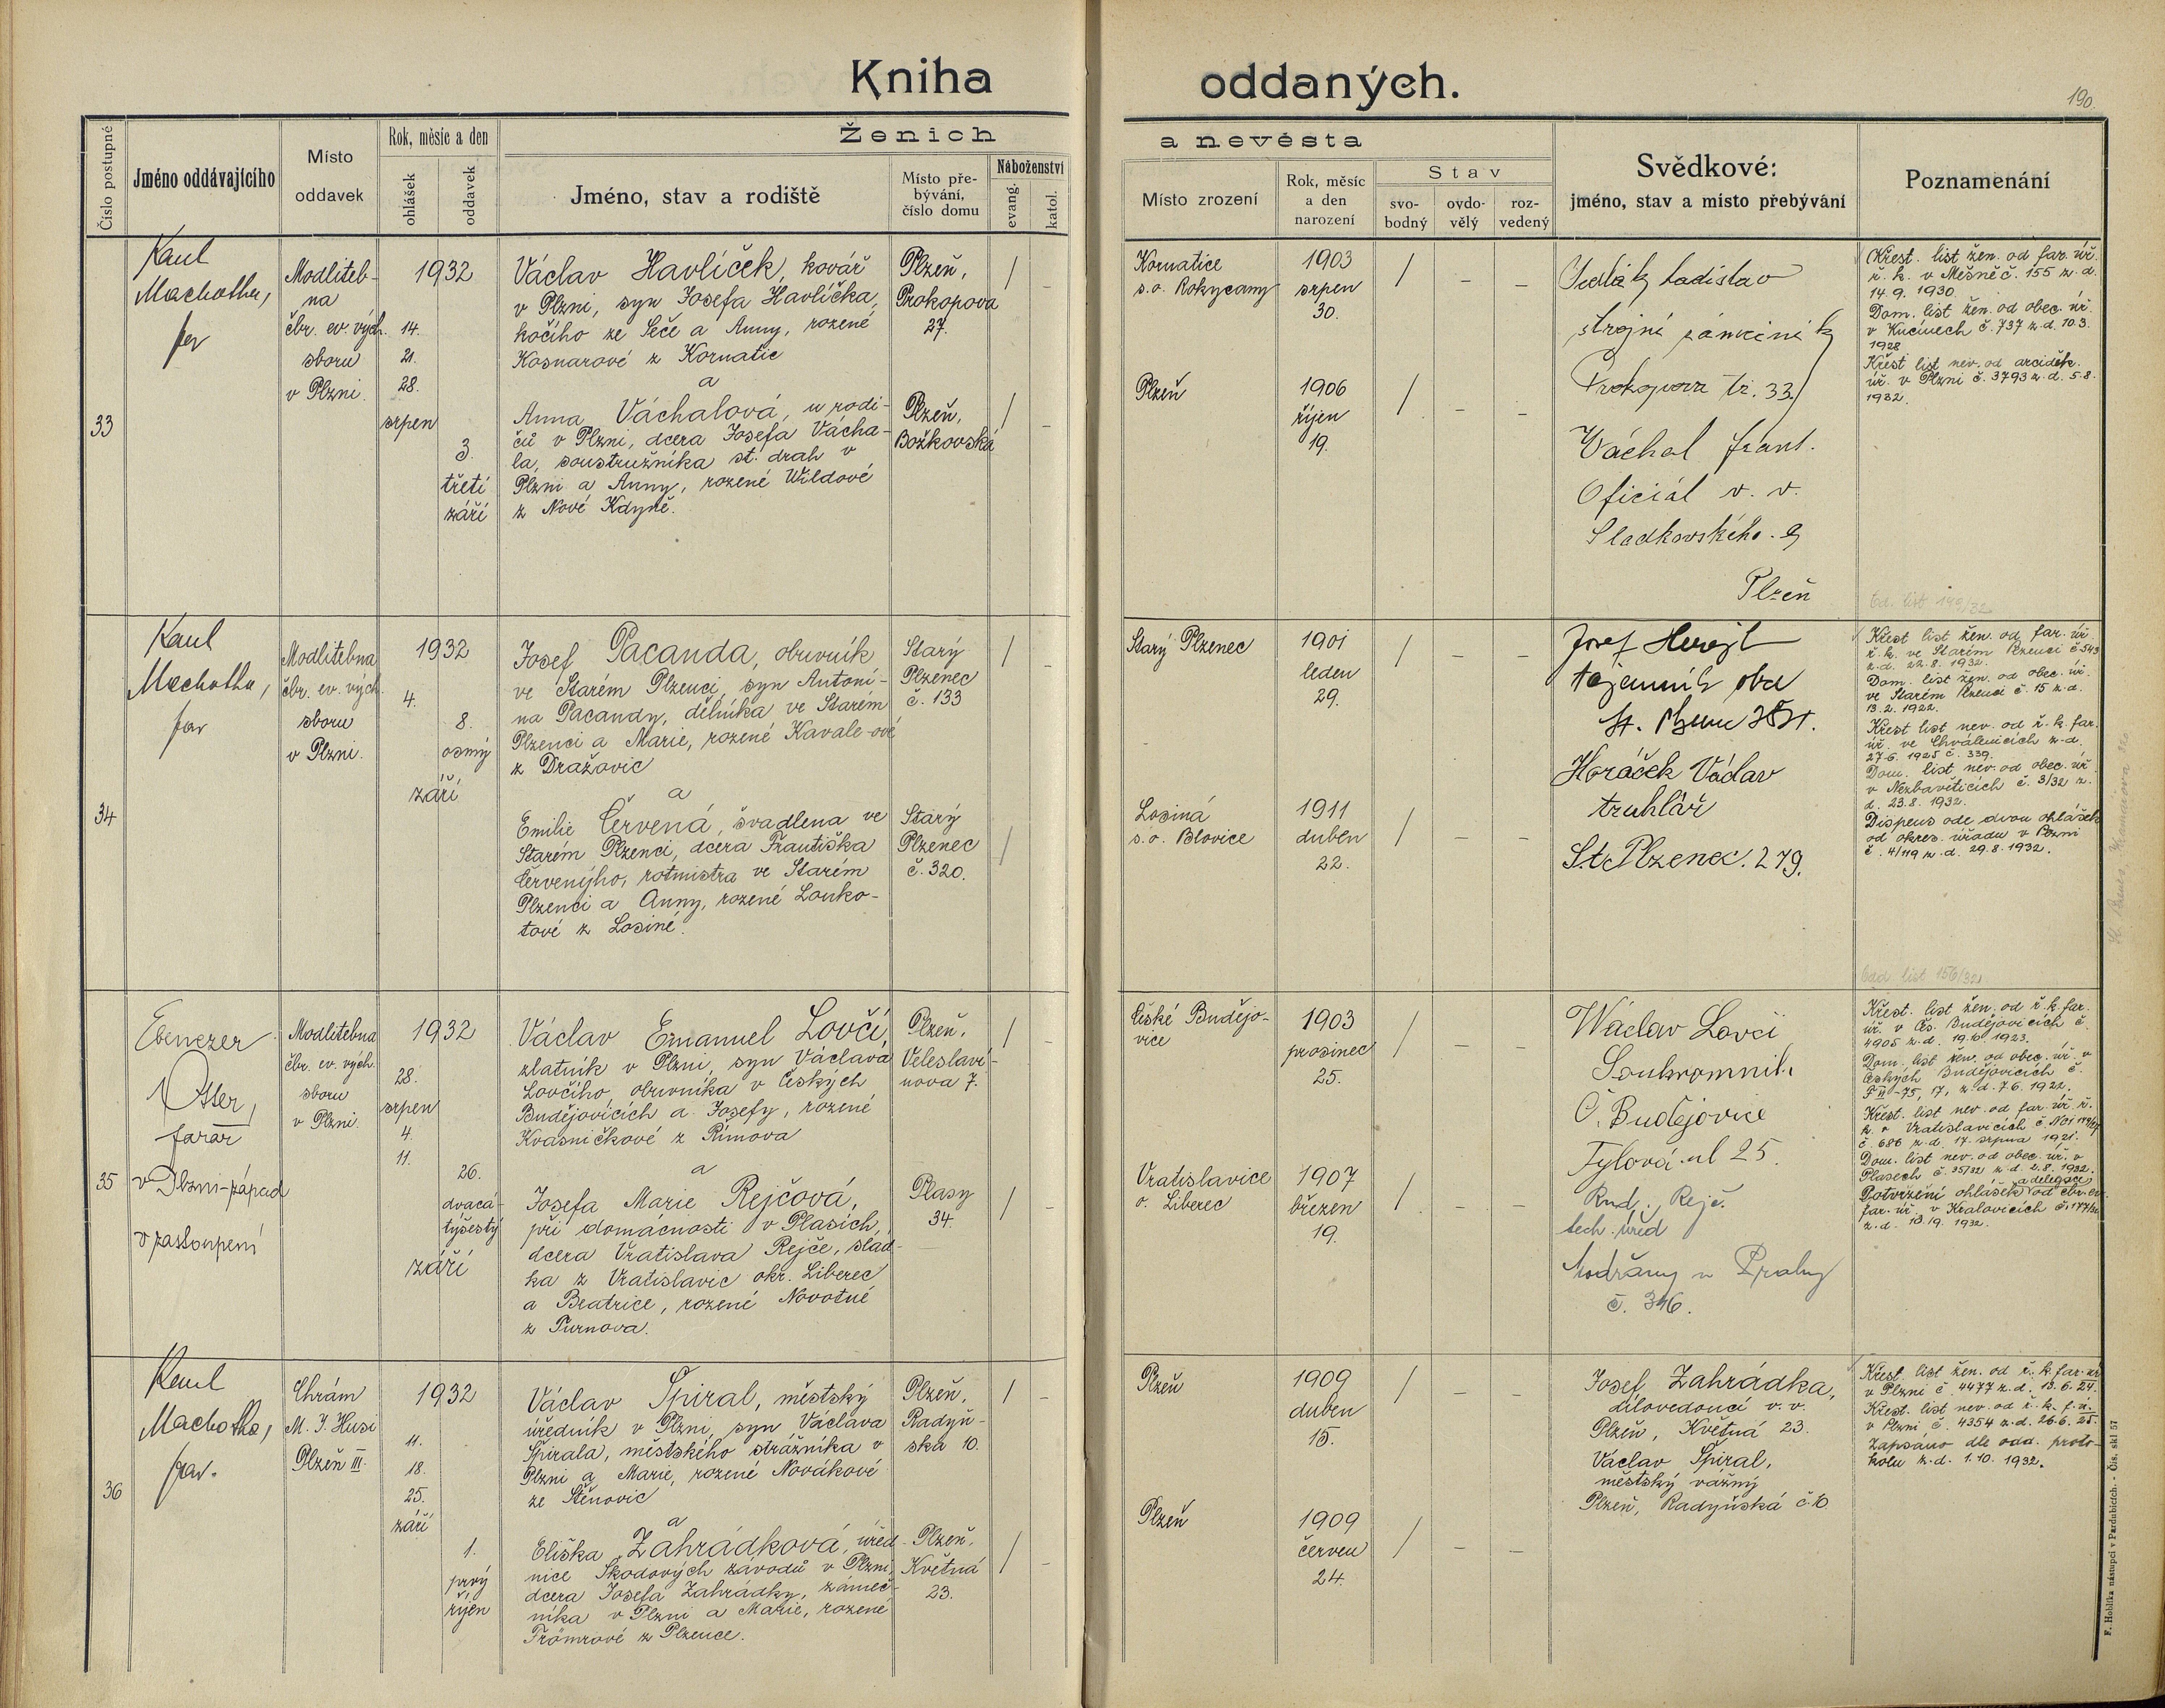 Kniha oddaných.
190.
Číslo postupné
Jméno oddávajícího
Místo
oddavek
Rok, měsíc a den
ohlášek
oddavek
Ženich
Jméno, stav a rodiště
Místo pře-
bývání,
číslo domu
Náboženství
evang.
katol.
a nevěsta
Místo zrození
Rok, měsíc
a den
narození
Stav
svo-
bodný
ovdo-
vělý
roz-
vedený
Svědkové:
jméno, stav a místo přebývání
Poznamenání
33
Machotka,
far
Modliteb-
na
čbr. ev. vých.
sboru
v Plzni.
1932
14.
21.
28.
srpen
3.
třetí
září
Václav Havlíček, kovář
v Plzni, syn Josefa Havlíčka,
kočího ze Seče a Anny, rozené
Kosnarové z Kornatic
a
Anna Váchalová, u rodi-
čů v Plzni, dcera Josefa Vácha-
la, soustružníka st. drah v
Plzni a Anny, rozené Wildové
z Nové Kdyně.
Plzeň,
Prokopova
27.
Plzeň,
Božkovská
Kornatice
s.o. Rokycany
1903
srpen
30.
Plzeň
1906
říjen
19.
Sedlák Ladislav
strojní zámečník
Prokopova tř. 33
Váchal Frant.
Oficiál v. v.
Sladkovského 9
Plzeň
Křest. list žen. od far. úř.
ř. k. v Měšně č. 155 z. d.
14. 9. 1930.
Dom. list žen. od obec. úř.
v č. 737 z. d. 10.3.
1928
Křest list nev. od arciděk.
úř. v Plzni č. 3793 z. d. 5.8.
1932.
Od. list 149/32
34
Machotka,
far
Modlitebna
čbr. ev. vých.
sboru
v Plzni.
1932
4.
8.
osmý
září
Josef Pacanda, obuvník
ve Starém Plzenci, syn Antoní-
na Pacandy, dělníka ve Starém
Plzenci a Marie, rozené Kavale-ové
z Dražovic
a
Emilie Červená, švadlena ve
Starém Plzenci, dcera Františka
Červenýho, rotmistra ve Starém
Plzenci a Anny, rozené Louko-
tové z Losiné.
Starý
Plzenec
č. 133
Starý
Plzenec
č. 320.
Starý Plzenec
1901
leden
29.
Losiná
s.o. Blovice
1911
duben
22.
Josef
tajemník
St.
Horáček Václav
truhlář
St. Plzenec. 279.
Křest list žen. od far. úř.
ř. k. ve Starém Plzenci č. 543
z. d. 22.8. 1932.
Dom. list žen. od obec. úř.
ve Starém Plzenci č. 15 z. d.
13.2. 1922.
Křest list nev. od ř. k. far.
úř. ve Chválenicích z. d.
27.6. 1925 č. 339.
Dom. list nev. od obec. úř.
v Nezbavěticích č. 3/32 z.
d. 23.8. 1932.
Dispens ode dvou ohlášek
od okres. úřadu v Plzni
č. 4/119 z. d. 29.8. 1932.
Odd. list 156/32
35
Ebenezer
Otter,
farář
v Plzni-západ
v zastoupení
Modlitebna
čbr. ev. vých.
sboru
v Plzni.
1932
28.
srpen
4.
11.
26.
dvacá-
týšestý
září
Václav Emanuel Lovčí,
zlatník v Plzni, syn Václava
Lovčího, obuvníka v Českých
Budějovicích a Josefy, rozené
Kvasničkové z Římova
a
Josefa Marie Rejčová,
při domácnosti v Plasích,
dcera Vratislava Rejče, slád-
ka z Vratislavic okr. Liberec
a Beatrice, rozené Novotné
z Turnova.
Plzeň,
Veleslaví-
nova 7.
Plasy
34.
České Budějo-
vice
1903
prosinec
25.
Vratislavice
o. Liberec
1907
březen
19.
Václav Lovčí
Č. Budějovice
Tylova ul 25
Rud. Rejč.
tech. úřed
Modřany u Prahy
č. 346.
Křest. list žen. od ř. k. far.
úř. v Čes. Budějovicích č.
4905 z. d. 19.10. 1923.
Dom. list žen. od obec. úř. v
Českých Budějovicích č.
P II-75, 17, z. d. 7.6. 1922.
Křest. list nev. od far. úř. ř.
k. v Vratislavicích
č. 686 z. d. 17. srpna 1921.
Dom. list nev. od obec. úř. v
Plasech č. 35/32 z. d. 2.8. 1932.
a delegace
Potvrzení ohlášek od čbr. ev.
far. úř. v Kralovicích č. 177/32
z. d. 13.9. 1932.
36
Machotka,
far.
Chrám
M. J. Husi
Plzeň III.
1932
11.
18.
25.
září
1.
prvý
říjen
Václav Špiral, městský
úředník v Plzni, syn Václava
Špirala, městského strážníka v
Plzni a Marie, rozené Novákové
ze Štěnovic
a
Eliška Zahrádková, úřed-
nice Škodových závodů v Plzni,
dcera Josefa Zahrádky, zámeč-
níka v Plzni a Marie, rozené
Frömrové z Plzence.
Plzeň,
Radyň-
ská 10.
Plzeň,
Květná
23.
Plzeň
1909
duben
15.
Plzeň
1909
červen
24.
Josef Zahrádka,
dílovedoucí v. v.
Plzeň, Květná 23.
Václav Špiral,
městský vážný
Plzeň, Radyňská č. 10
Křest. list žen. od ř. k. far. úř.
v Plzni č. 4477 z. d. 13.6. 24.
Křest. list nev. od ř. k. f. ú.
v Plzni č. 4354 z. d. 26.6. 25.
Zapsáno dle odd. proto-
kolu z. d. 1.10. 1932.
F. Hoblíka nástupci v Pardubicích. - Čís. skl 57